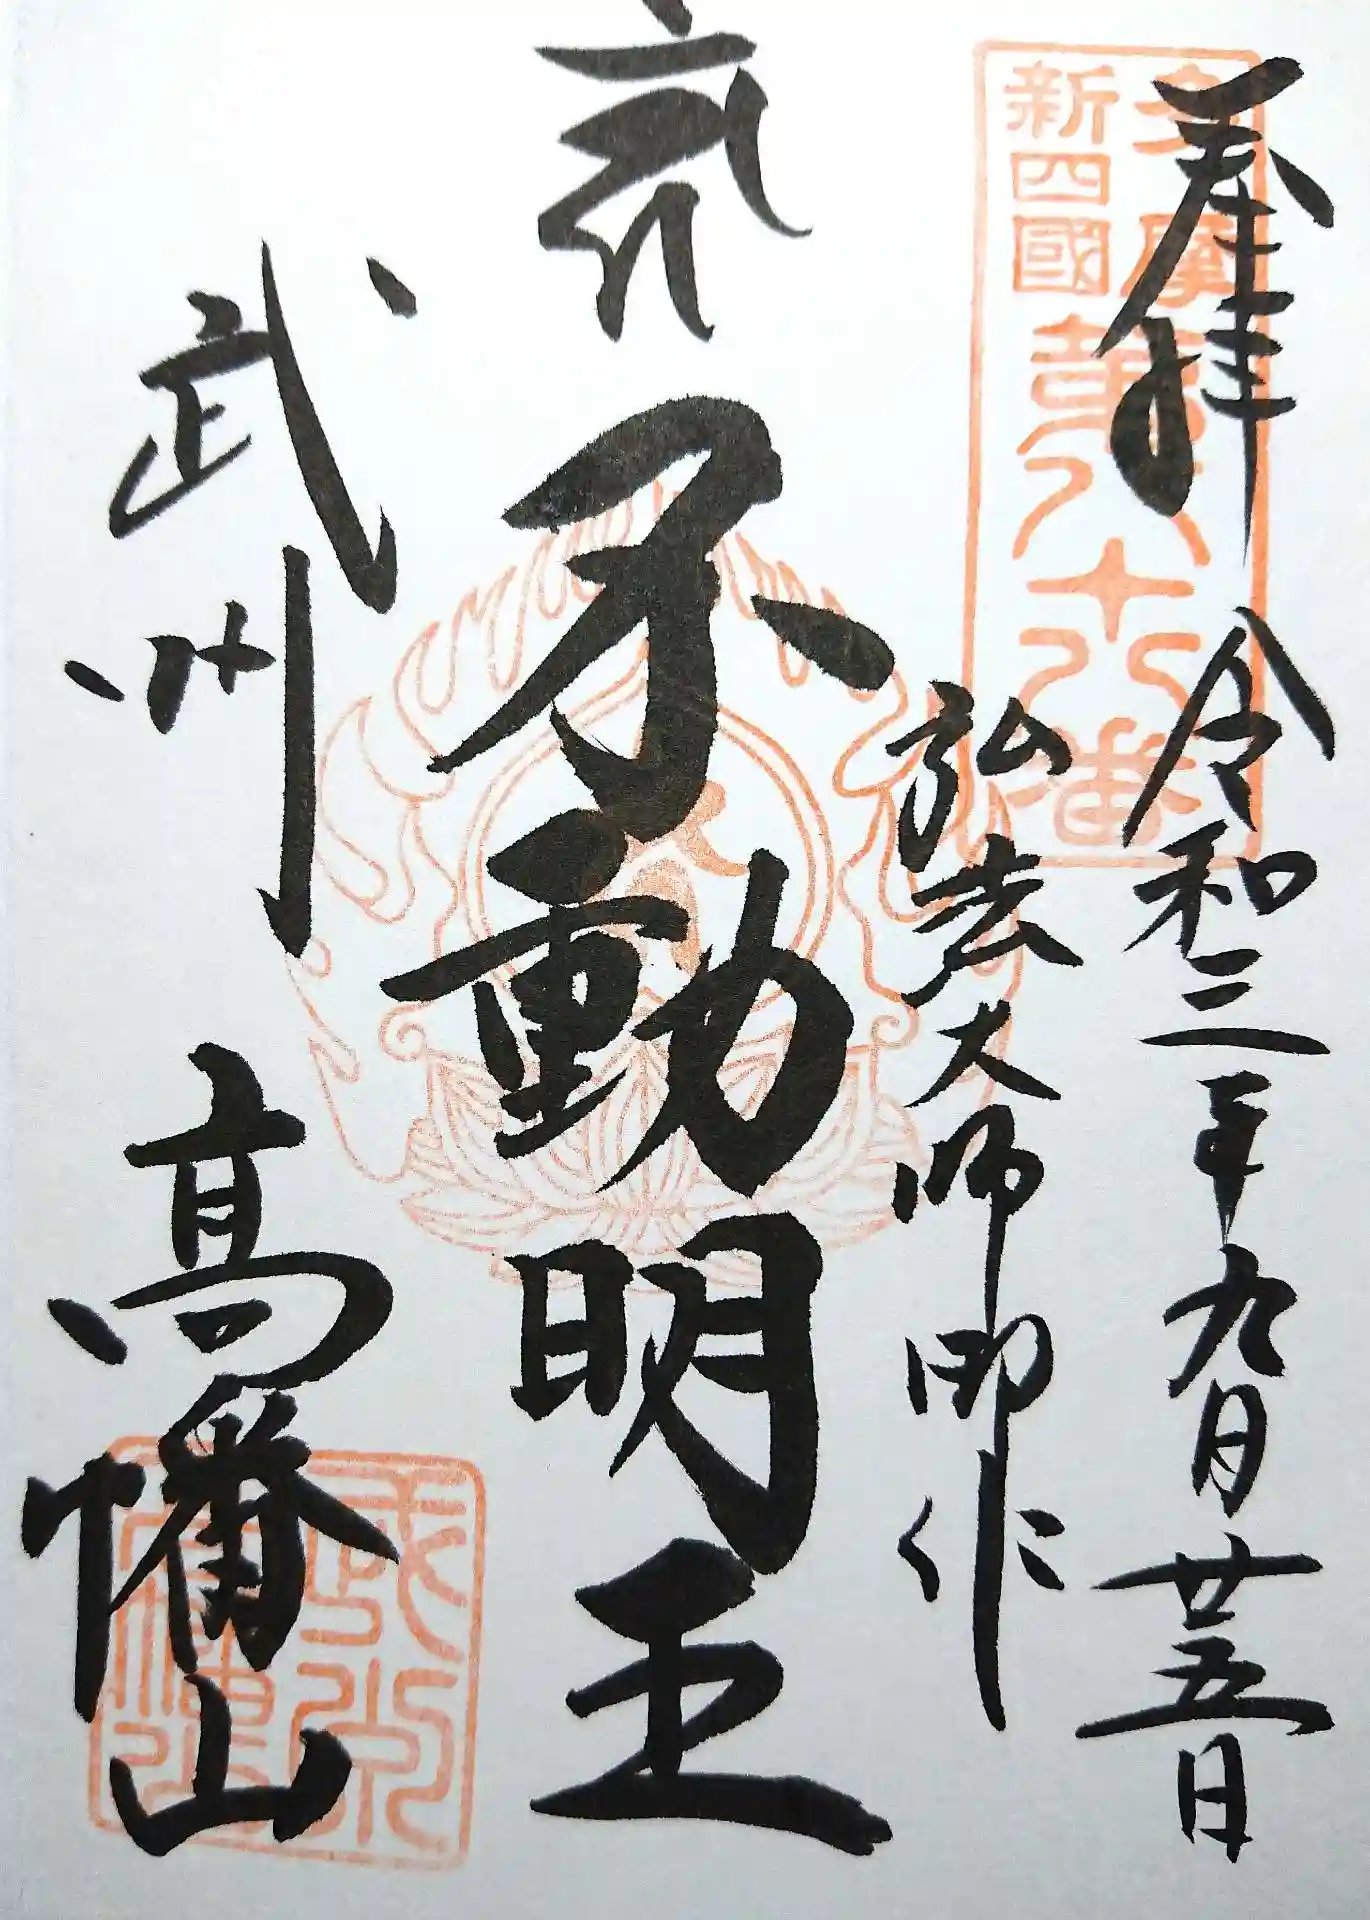 奉拝 令和三年九月廿五日
多摩
新四國
第八十八番
弘法大師御作
不動明王
武州 高幡山